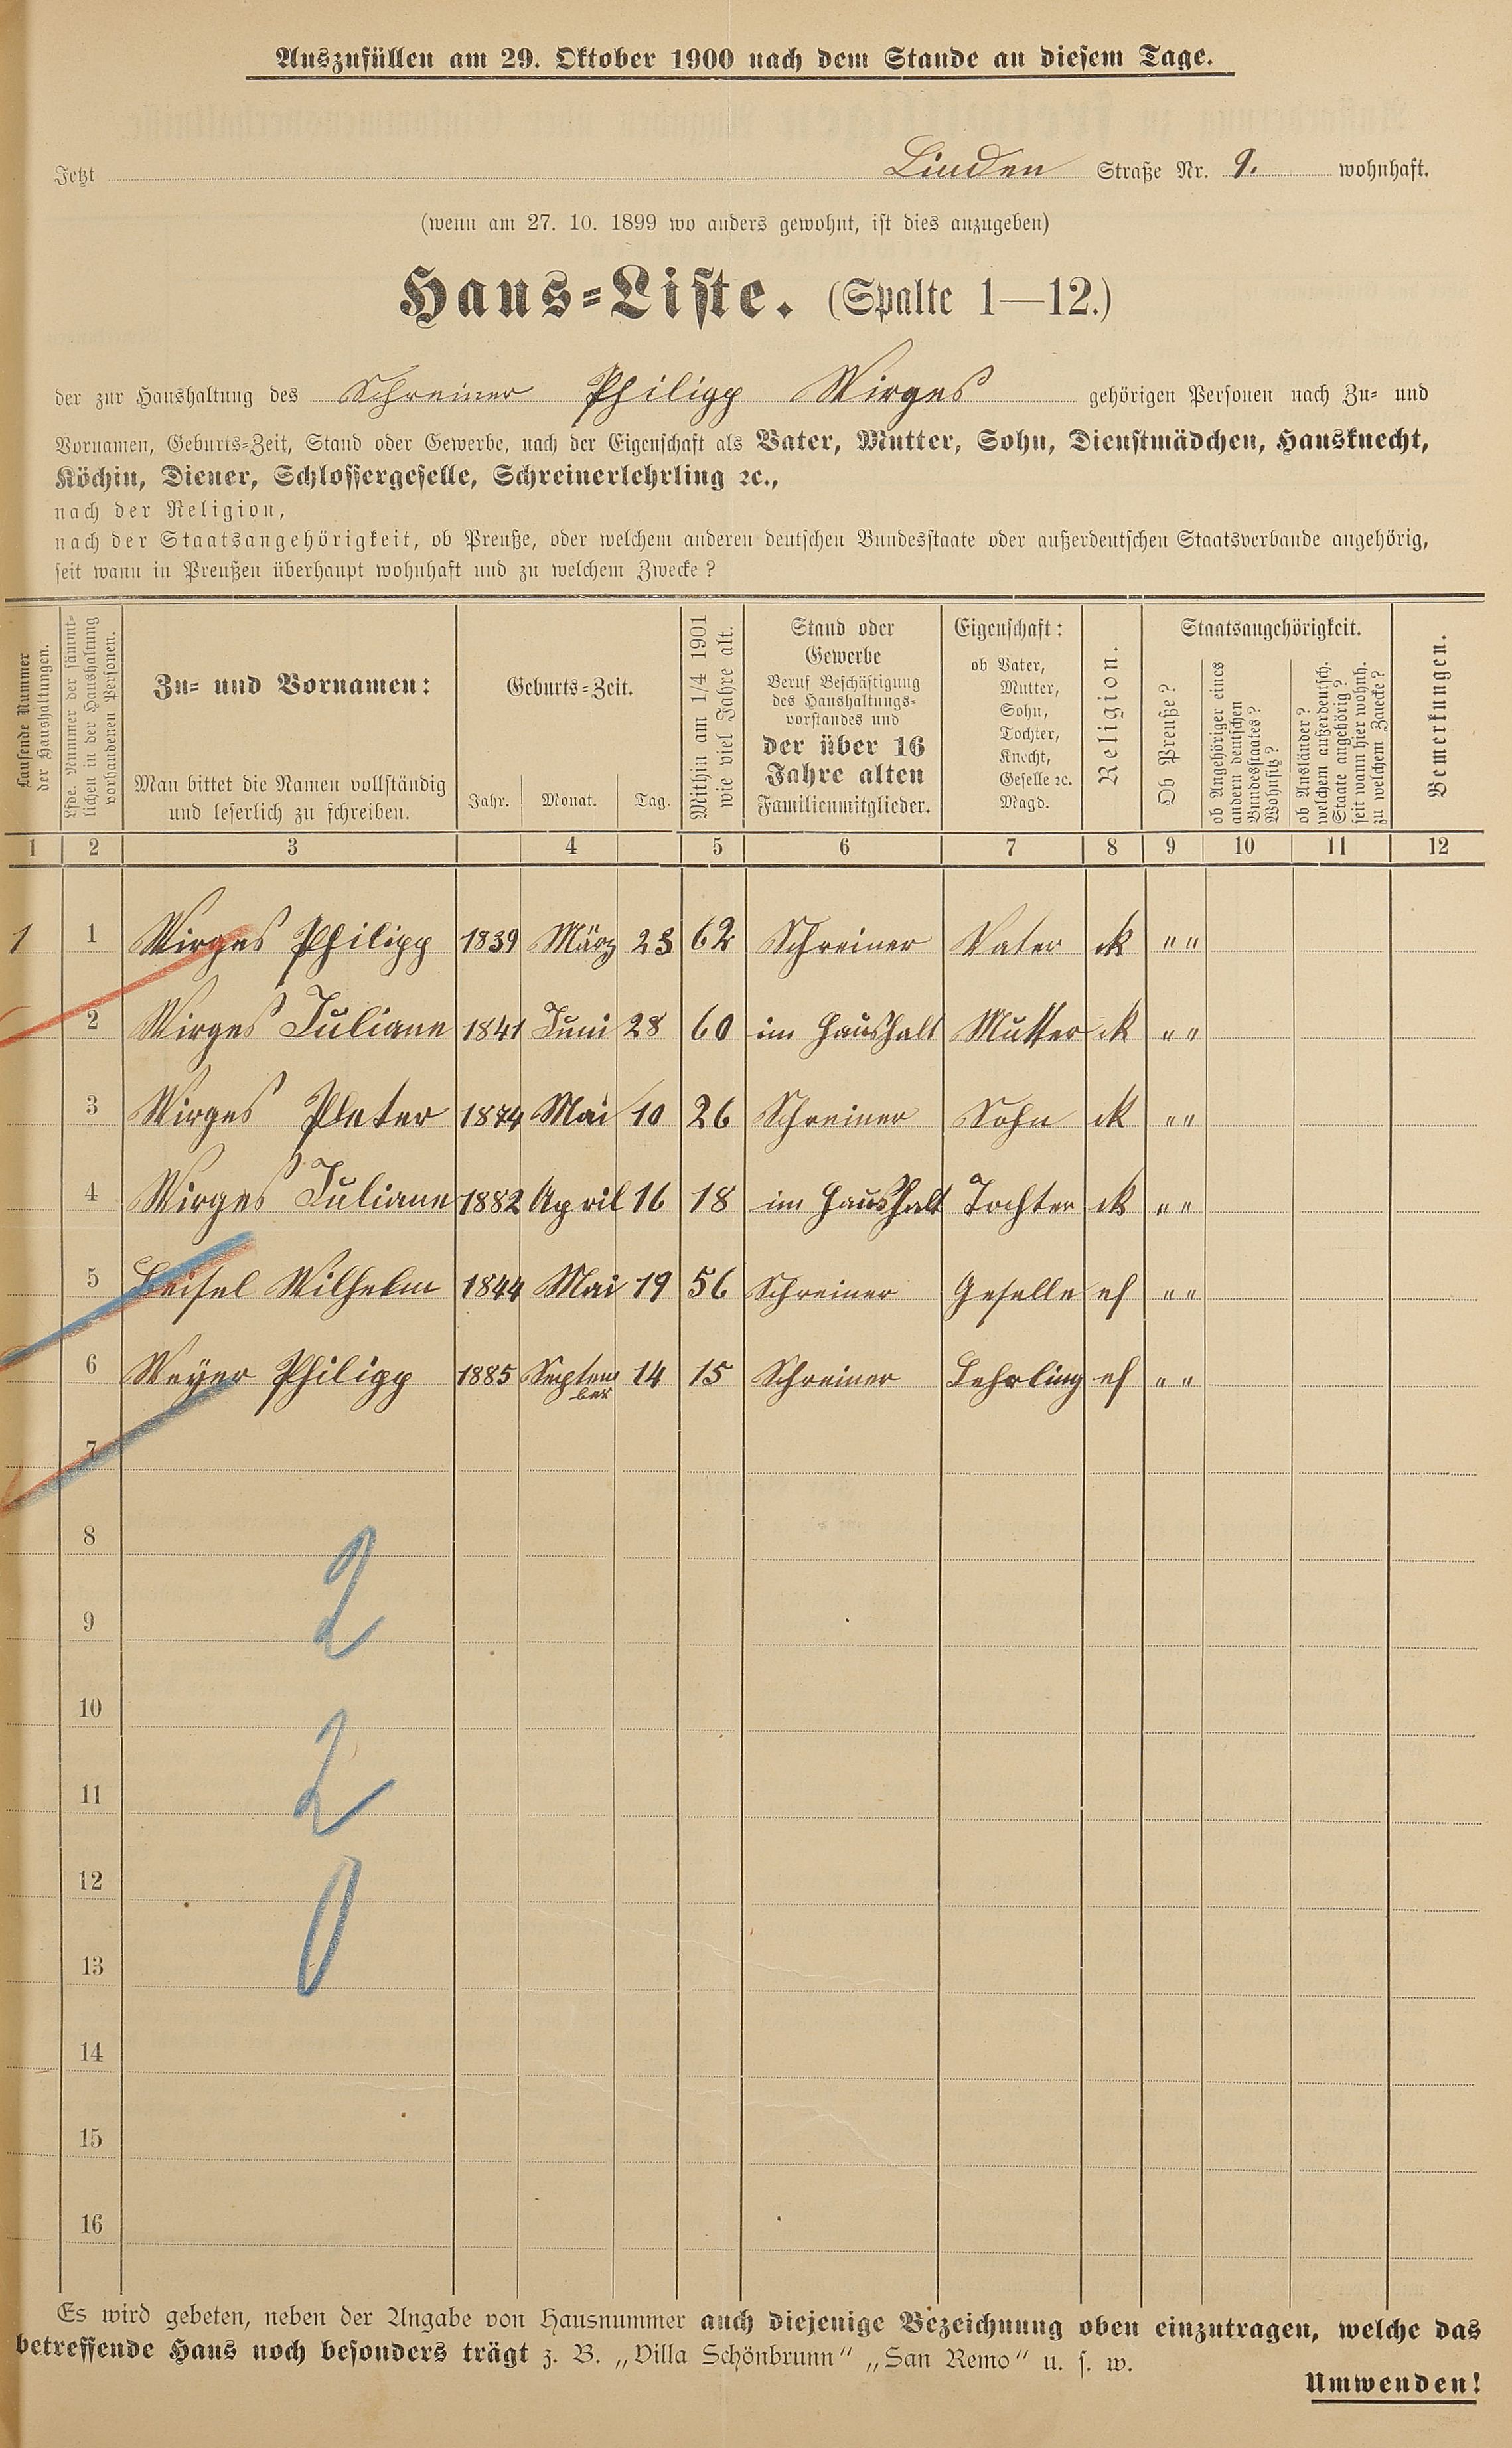 Auszufüllen am 29. Oktober 1900 nach dem Stande an diesem Tage.
Jetzt Linden Straße Nr. 9. wohnhaft.
(wenn am 27. 10. 1899 wo anders gewohnt, ist dies anzugeben)
Haus-Liste. (Spalte 1—12.)
der zur Haushaltung des Schreiner Philipp Wirges gehörigen Personen nach Zu- und
Vornamen, Geburts-Zeit, Stand oder Gewerbe, nach der Eigenschaft als Vater, Mutter, Sohn, Dienstmädchen, Hausknecht,
Köchin, Diener, Schlossergeselle, Schreinerlehrling ꝛc.,
nach der Religion,
nach der Staatsangehörigkeit, ob Preuße, oder welchem anderen deutschen Bundesstaate oder außerdeutschen Staatsverbande angehörig,
seit wann in Preußen überhaupt wohnhaft und zu welchem Zwecke?
Laufende Nummer
der Haushaltungen.
Lfde. Nummer der sämmt-
lichen in der Haushaltung
vorhandenen Personen.
Zu- und Vornamen:
Man bittet die Namen vollständig
und leserlich zu schreiben.
Geburts-Zeit.
Jahr. Monat. Tag.
Mithin am 1/4 1901
wie viel Jahre alt.
Stand oder
Gewerbe
Beruf Beschäftigung
des Haushaltungs-
vorstandes und
der über 16
Jahre alten
Familienmitglieder.
Eigenschaft:
ob Vater,
Mutter,
Sohn,
Tochter,
Knecht,
Geselle ꝛc.
Magd.
Religion.
Staatsangehörigkeit.
Ob Preuße?
ob Angehöriger eines
andern deutschen
Bundesstaates?
Wohnsitz?
ob Ausländer?
welchem außerdeutsch.
Staate angehörig?
seit wann hier wohnh.
zu welchem Zwecke?
Bemerkungen.
1 2 3 4 5 6 7 8 9 10 11 12
1 1 Wirges Philipp 1839 März 23 62 Schreiner Vater k " "
2 Wirges Juliane 1841 Juni 28 60 im Haushalt Mutter k " "
3 Wirges Peter 1874 Mai 10 26 Schreiner Sohn k " "
4 Wirges Juliane 1882 April 16 18 im Haushalt Tochter k " "
5 Beisel Wilhelm 1844 Mai 19 56 Schreiner Geselle ef " "
6 Weyer Philipp 1885 Septem 14 15 Schreiner Lehrling ef " "
ber
7
8
2
9
10
2
11
12
0
13
14
15
16
Es wird gebeten, neben der Angabe von Hausnummer auch diejenige Bezeichnung oben einzutragen, welche das
betreffende Haus noch besonders trägt z. B. „Villa Schönbrunn" „San Remo" u. s. w.
Umwenden!